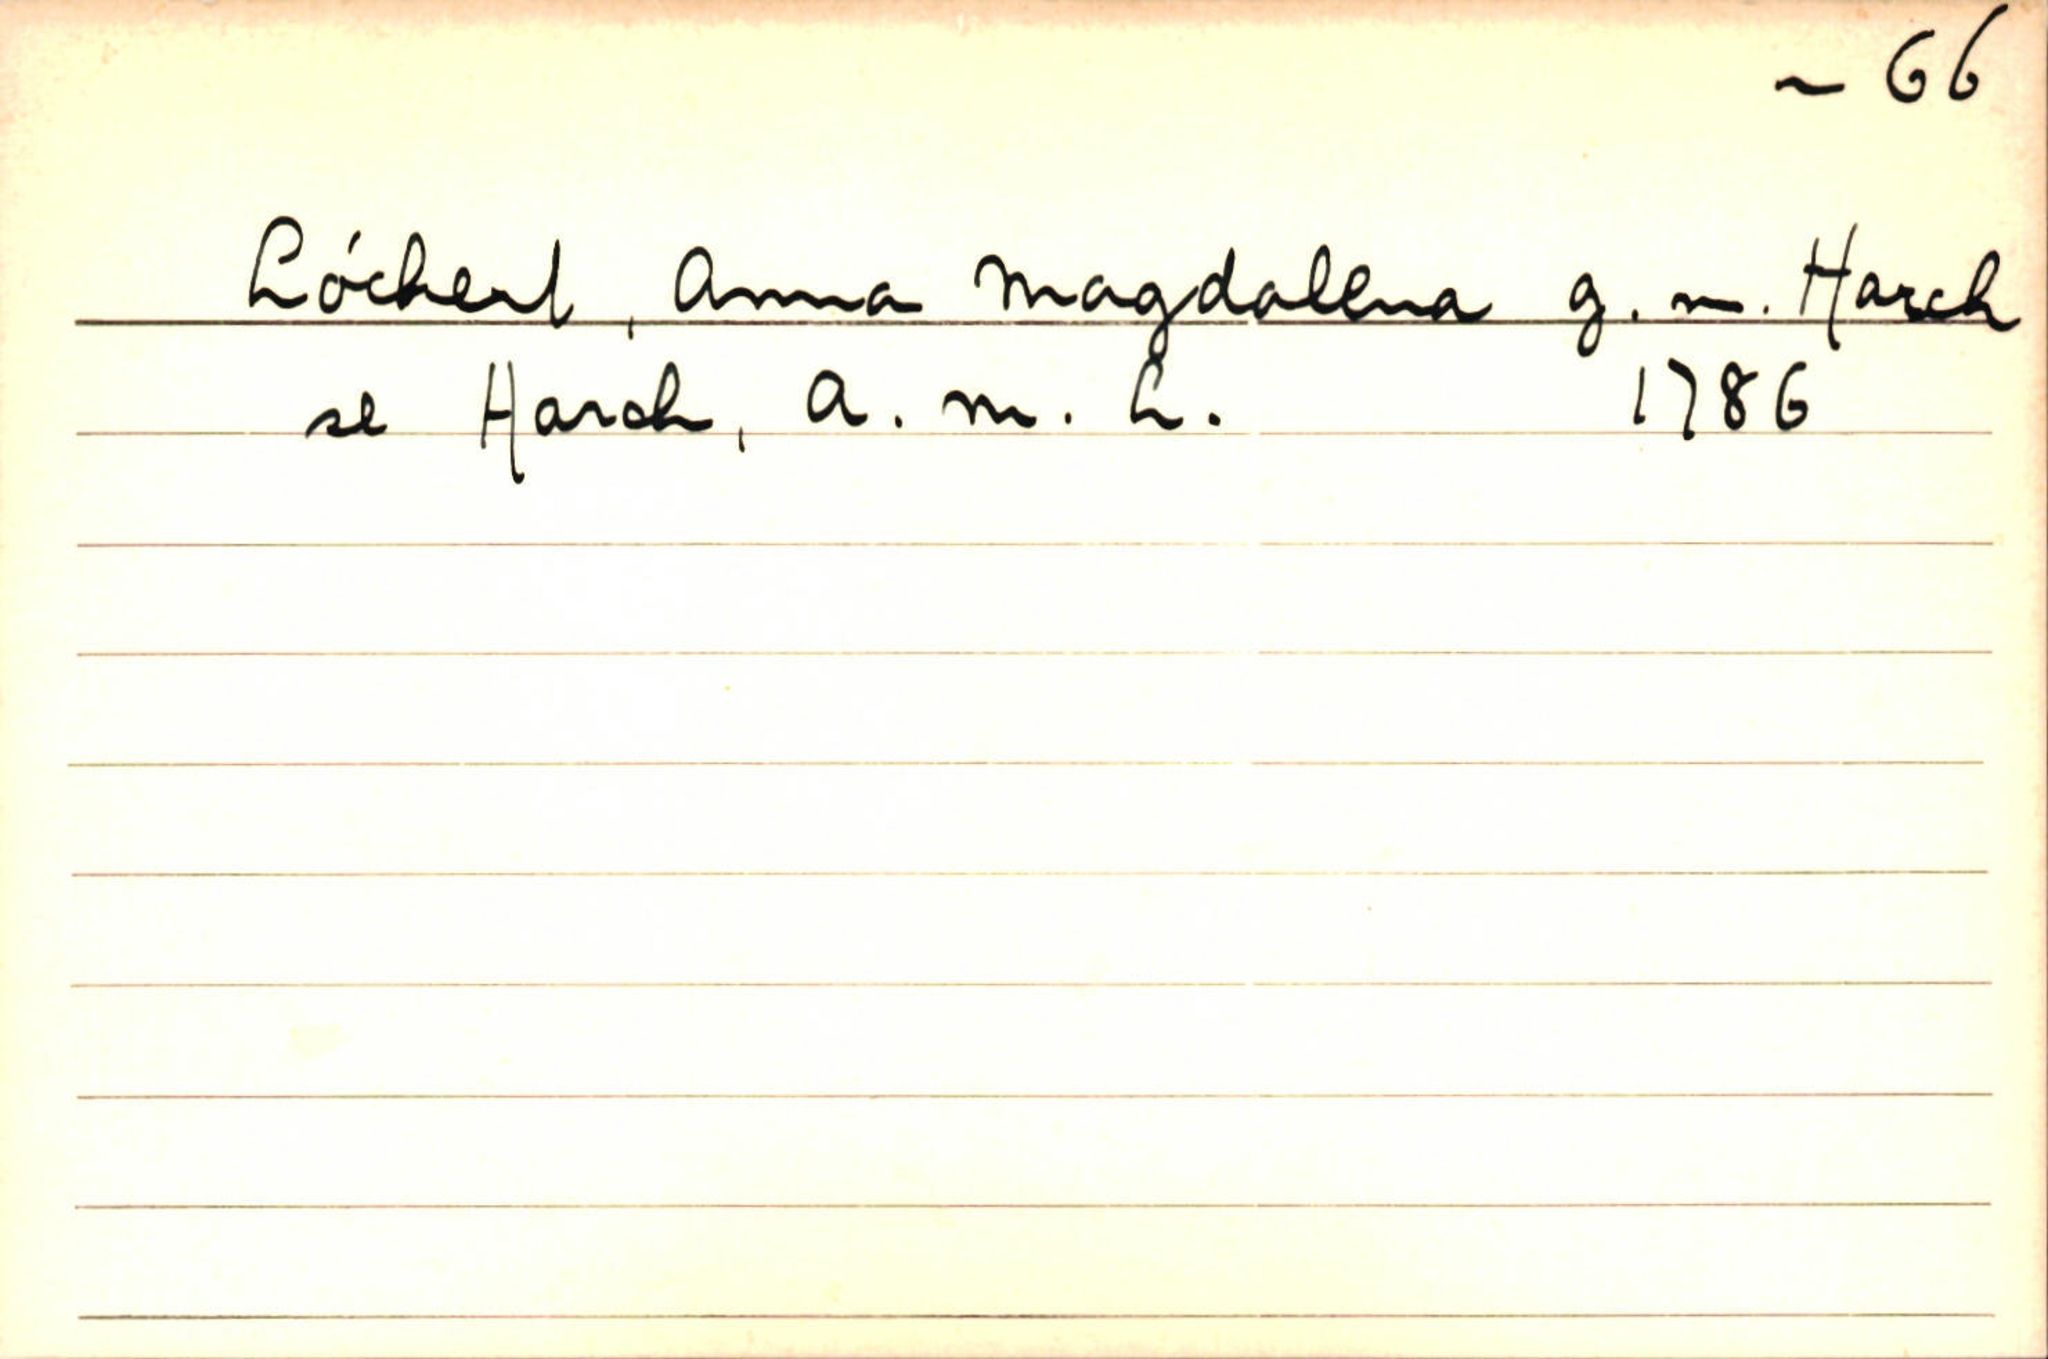 ~ 66
Löchert, Anna Magdalena g. m. Harch
se Harch, A. M. L. 1786